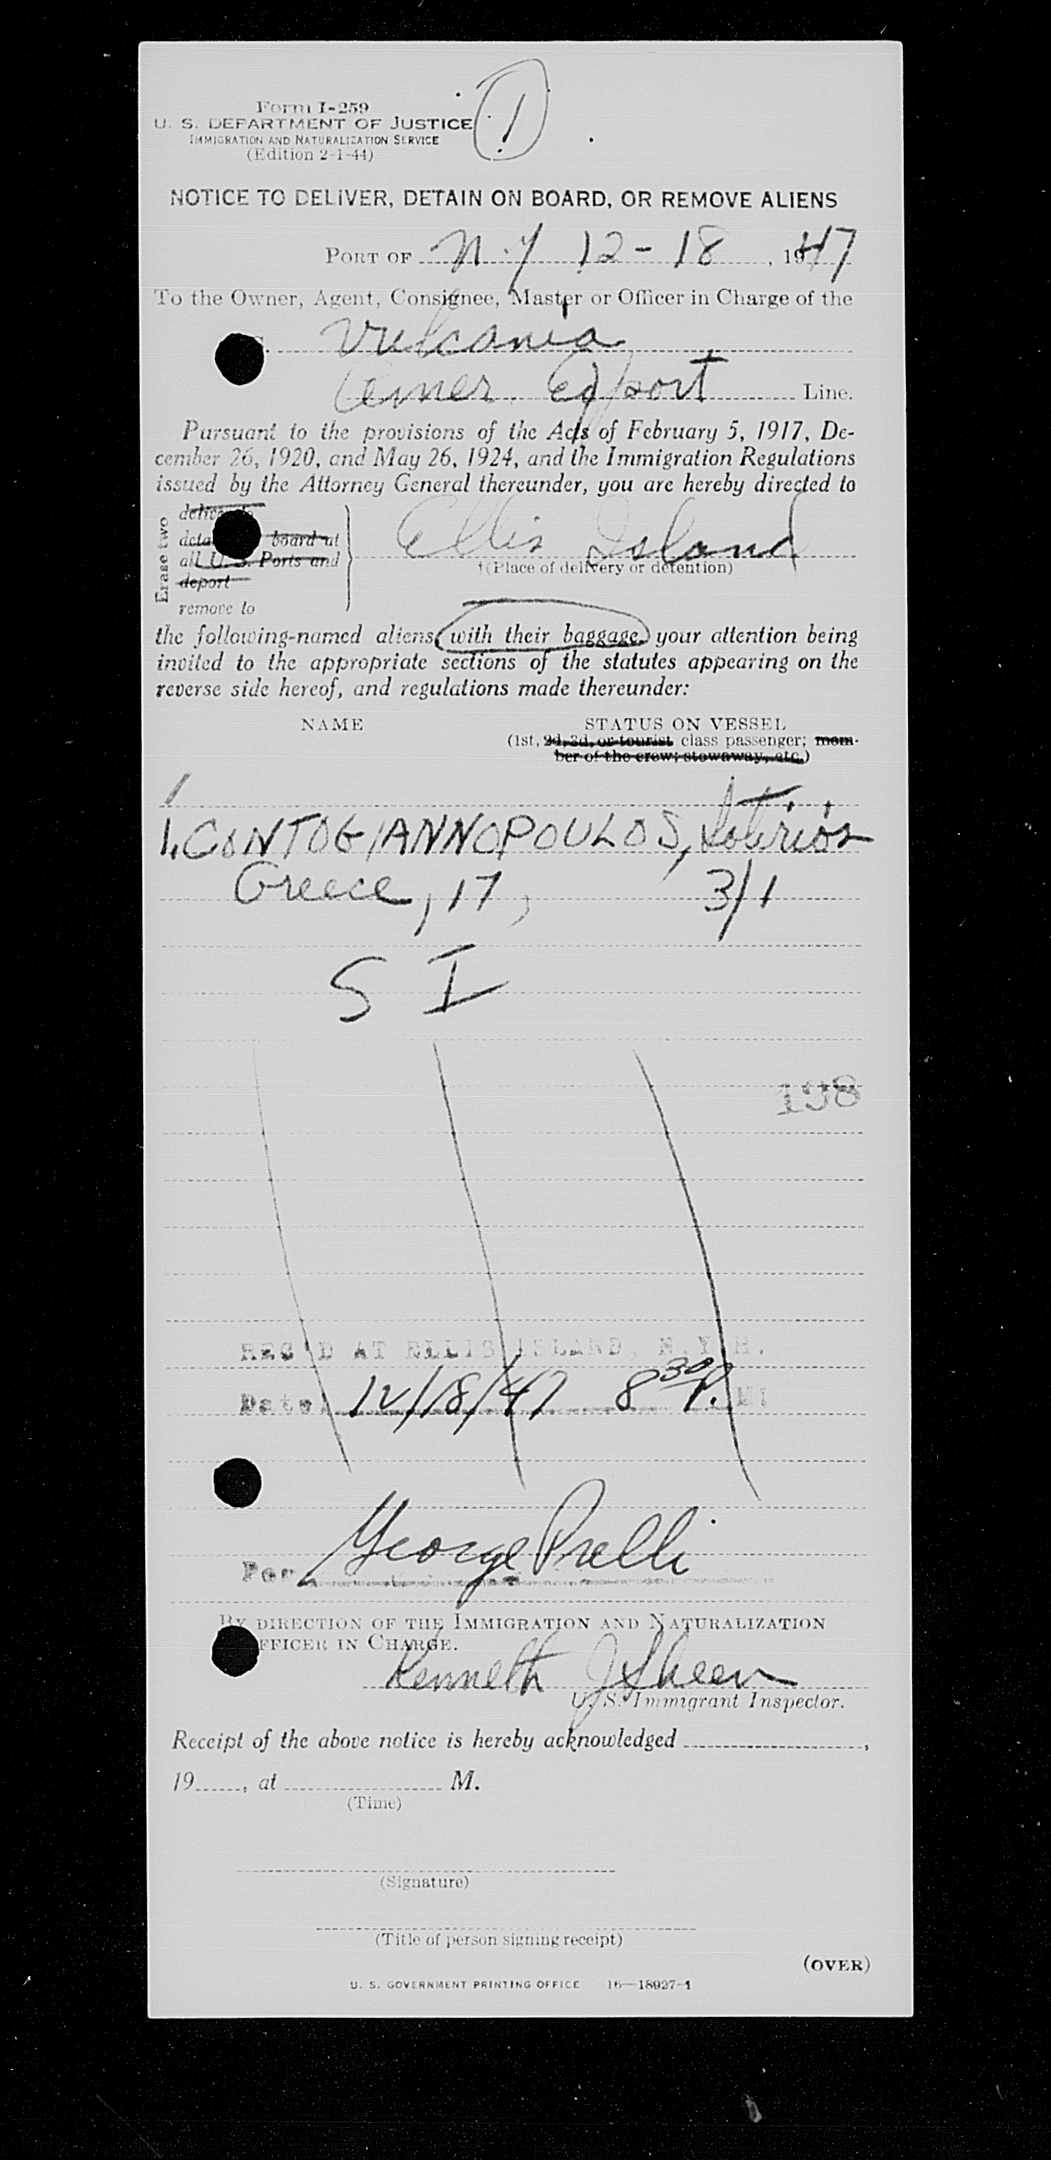 Form I-259
U. S. DEPARTMENT OF JUSTICE
IMMIGRATION AND NATURALIZATION SERVICE
(Edition 2-1-44)
1
NOTICE TO DELIVER, DETAIN ON BOARD, OR REMOVE ALIENS
PORT OF N.Y 12-18, 1947
To the Owner, Agent, Consignee, Master or Officer in Charge of the
Vulcania
Amer. Export Line.
Pursuant to the provisions of the Acts of February 5, 1917, De-
cember 26, 1920, and May 26, 1924, and the Immigration Regulations
issued by the Attorney General thereunder, you are hereby directed to
Erase two
board at
all U. S. Ports and
deport
remove to
Ellis Island
†(Place of delivery or detention)
the following-named aliens, with their baggage, your attention being
invited to the appropriate sections of the statutes appearing on the
reverse side hereof, and regulations made thereunder:
NAME STATUS ON VESSEL
(1st, 2d, 3d, or tourist class passenger; mem-
ber of the crew; stowaway, etc.)
1. CONTOGIANNOPOULOS, Sotirios
Greece, 17, 3/1
S I
198
REC'D AT ELLIS ISLAND, N.Y.H.
Date: 12/18/47 8 30 P. M
Per George Prelli
BY DIRECTION OF THE IMMIGRATION AND NATURALIZATION
OFFICER IN CHARGE.
Kenneth J Sheen
U. S. Immigrant Inspector.
Receipt of the above notice is hereby acknowledged ,
19 , at M.
(Time)
(Signature)
(Title of person signing receipt)
(OVER)
U. S. GOVERNMENT PRINTING OFFICE 16—18927-1